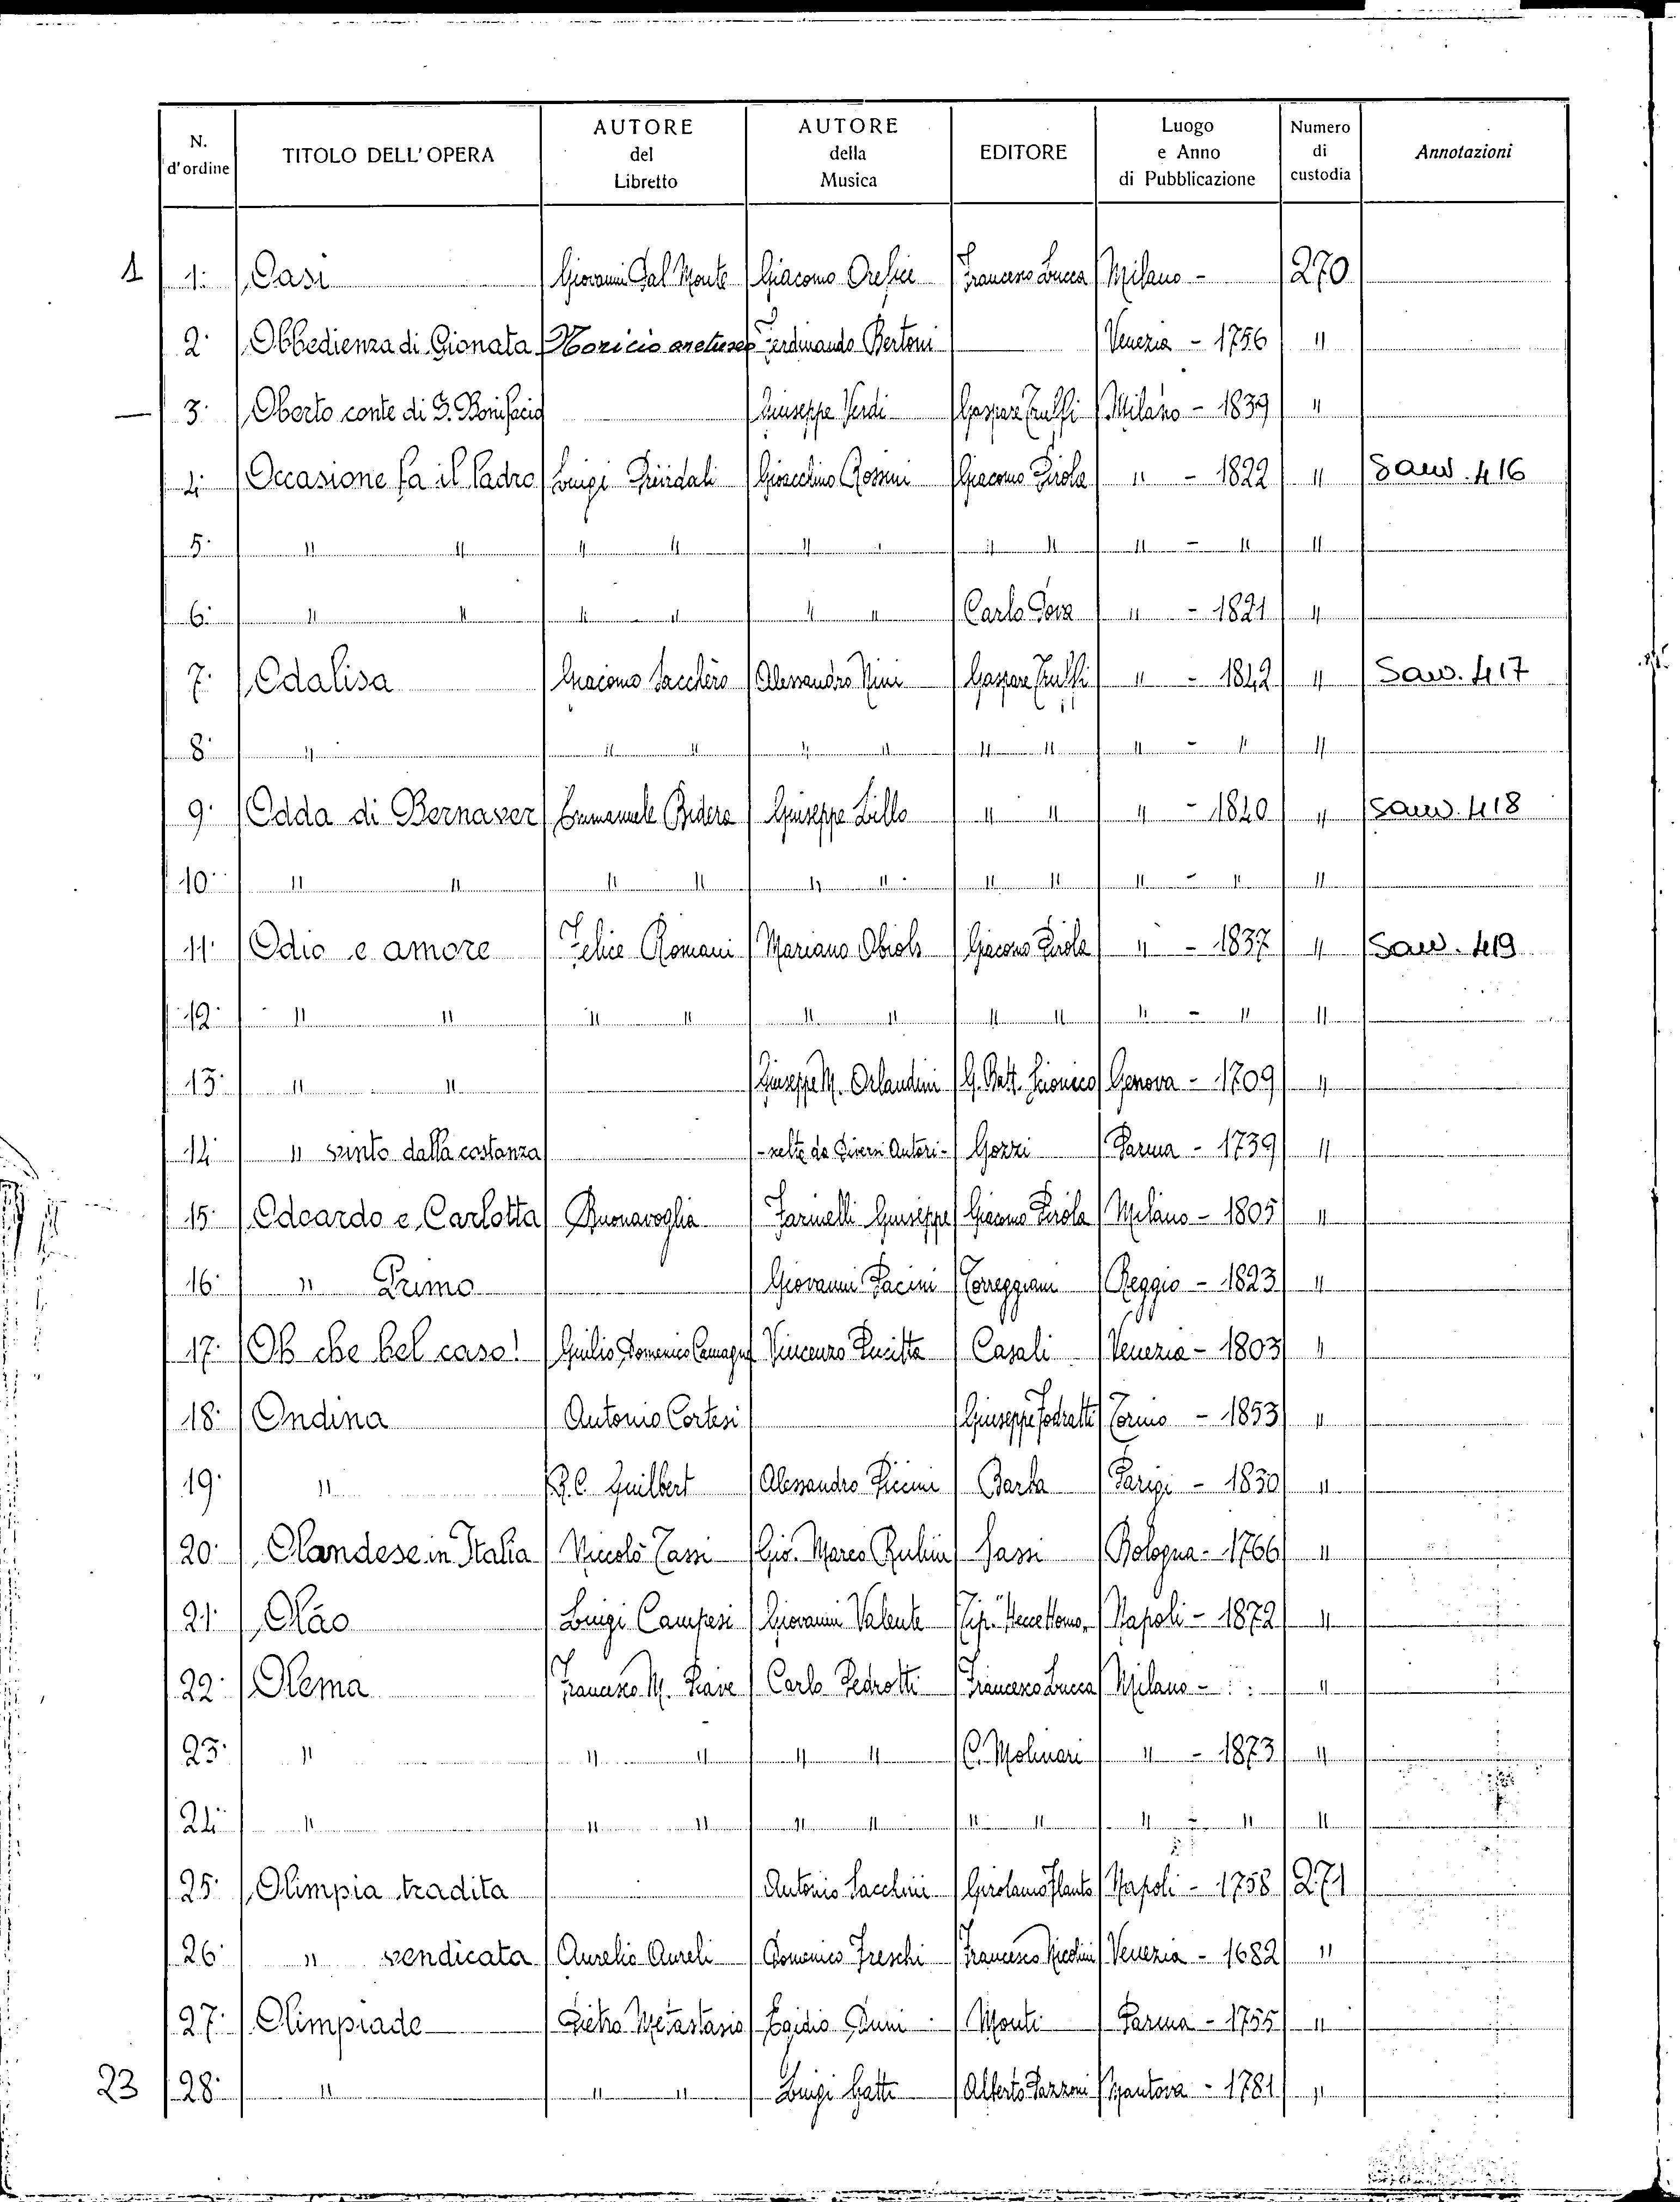 N. d'ordine TITOLO DELL'OPERA AUTORE del Libretto AUTORE della Musica EDITORE Luogo e Anno di Pubblicazione Numero di custodia Annotazioni
1 1. Oasi Giovanni Dal Monte Giacomo Orefice Francesco Lucca Milano - 270
2. Obbedienza di Gionata Ferdinando Bertoni Venezia - 1756 "
— 3. Oberto conte di S. Bonifacio Giuseppe Verdi Gaspare Truffi Milano - 1839 "
4. Occasione fa il ladro Luigi Gioacchino Rossini Giacomo Pirola " - 1822 " Saw. 416
5. " " " " " " " " " - " "
6. " " " " " " Carlo Dova " - 1821 "
7. Odalisa Giacomo Sacchèro Alessandro Nini Gaspare Truffi " - 1842 " Saw. 417
8. " " " " " " " " - " "
9. Odda di Bernaver Emmanuele Bidera Giuseppe Lillo " " " - 1840 " Saw. 418
10. " " " " " " " " " - " "
11. Odio e amore Felice Romani Mariano Obiols Giacomo Pirola " - 1837 " Saw. 419
12. " " " " " " " " " - " "
13. " " Giuseppe M. Orlandini G. Batt. Genova - 1709 "
14. " vinto dalla costanza - scelta da Diversi Autori - Gozzi Parma - 1739 "
15. Odoardo e Carlotta Buonavoglia Farinelli Giuseppe Giacomo Pirola Milano - 1805 "
16. " Primo Giovanni Pacini Torreggiani Reggio - 1823 "
17. Oh che bel caso! Giulio Domenico Camagna Vincenzo Pucitta Casali Venezia - 1803 "
18. Ondina Antonio Cortesi Giuseppe Fodratti Torino - 1853 "
19. " Guilbert Alessandro Piccini Barba Parigi - 1830 "
20. Olandese in Italia Niccolò Tassi Gio. Marco Rutini Sassi Bologna - 1766 "
21. Olão Luigi Campesi Giovanni Valente Tip. Napoli - 1872 "
22. Olema Francesco M. Piave Carlo Pedrotti Francesco Lucca Milano - "
23. " " " " " C. Molinari " - 1873 "
24. " " " " " " " " - " "
25. Olimpia tradita Antonio Sacchini Girolamo Flauto Napoli - 1758 271
26. " vendicata Aurelio Aureli Domenico Freschi Francesco Nicolini Venezia - 1682 "
27. Olimpiade Pietro Metastasio Egidio Duni Monti Parma - 1755 "
23 28. " " " Luigi Gatti Alberto Pazzoni Mantova - 1781 "